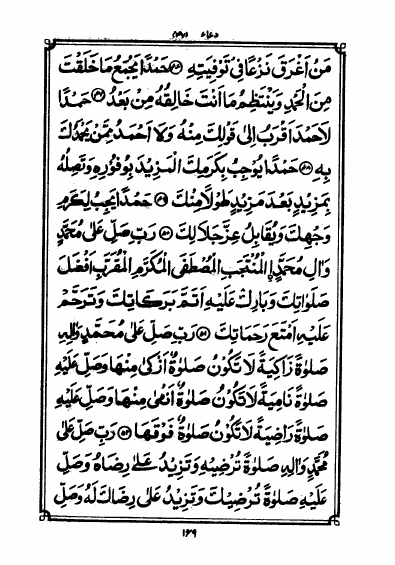 دعاء (۴۷)
مَنْ اَغْرَقَ نَزْعًا فِيْ تَوْفِيَتِهِ ﴿۴۶﴾ حَمْدًا يَجْمَعُ مَا خَلَقْتَ
مِنَ الْحَمْدِ وَيَنْتَظِمُ مَا اَنْتَ خَالِقُهُ مِنْ بَعْدُ ﴿۴۷﴾ حَمْدًا
لَا حَمْدَ اَقْرَبُ اِلٰى قَوْلِكَ مِنْهُ وَلَا اَحْمَدُ مِمَّنْ يَحْمَدُكَ
بِهِ ﴿۴۸﴾ حَمْدًا يُوْجِبُ بِكَرَمِكَ الْمَزِيْدَ بِوُفُوْرِهِ وَتَصِلُهُ
بِمَزِيْدٍ بَعْدَ مَزِيْدٍ طَوْلًا مِنْكَ ﴿۴۹﴾ حَمْدًا يَجِبُ لِكَرَمِ
وَجْهِكَ وَيُقَابِلُ عِزَّ جَلَالِكَ ﴿۵۰﴾ رَبِّ صَلِّ عَلٰى مُحَمَّدٍ
وَاٰلِ مُحَمَّدٍ الْمُنْتَجَبِ الْمُصْطَفَى الْمُكَرَّمِ الْمُقَرَّبِ اَفْضَلَ
صَلَوَاتِكَ وَبَارِكْ عَلَيْهِ اَتَمَّ بَرَكَاتِكَ وَتَرَحَّمْ
عَلَيْهِ اَمْتَعَ رَحَمَاتِكَ ﴿۵۱﴾ رَبِّ صَلِّ عَلٰى مُحَمَّدٍ وَاٰلِهِ
صَلٰوةً زَاكِيَةً لَا تَكُوْنُ صَلٰوةٌ اَزْكٰى مِنْهَا وَصَلِّ عَلَيْهِ
صَلٰوةً نَامِيَةً لَا تَكُوْنُ صَلٰوةٌ اَنْمٰى مِنْهَا وَصَلِّ عَلَيْهِ
صَلٰوةً رَاضِيَةً لَا تَكُوْنُ صَلٰوةٌ فَوْقَهَا ﴿۵۲﴾ رَبِّ صَلِّ عَلٰى
مُحَمَّدٍ وَاٰلِهِ صَلٰوةً تُرْضِيْهِ وَتَزِيْدُ عَلٰى رِضَاهُ وَصَلِّ
عَلَيْهِ صَلٰوةً تُرْضِيْكَ وَتَزِيْدُ عَلٰى رِضَاكَ لَهُ وَصَلِّ
۱۶۹